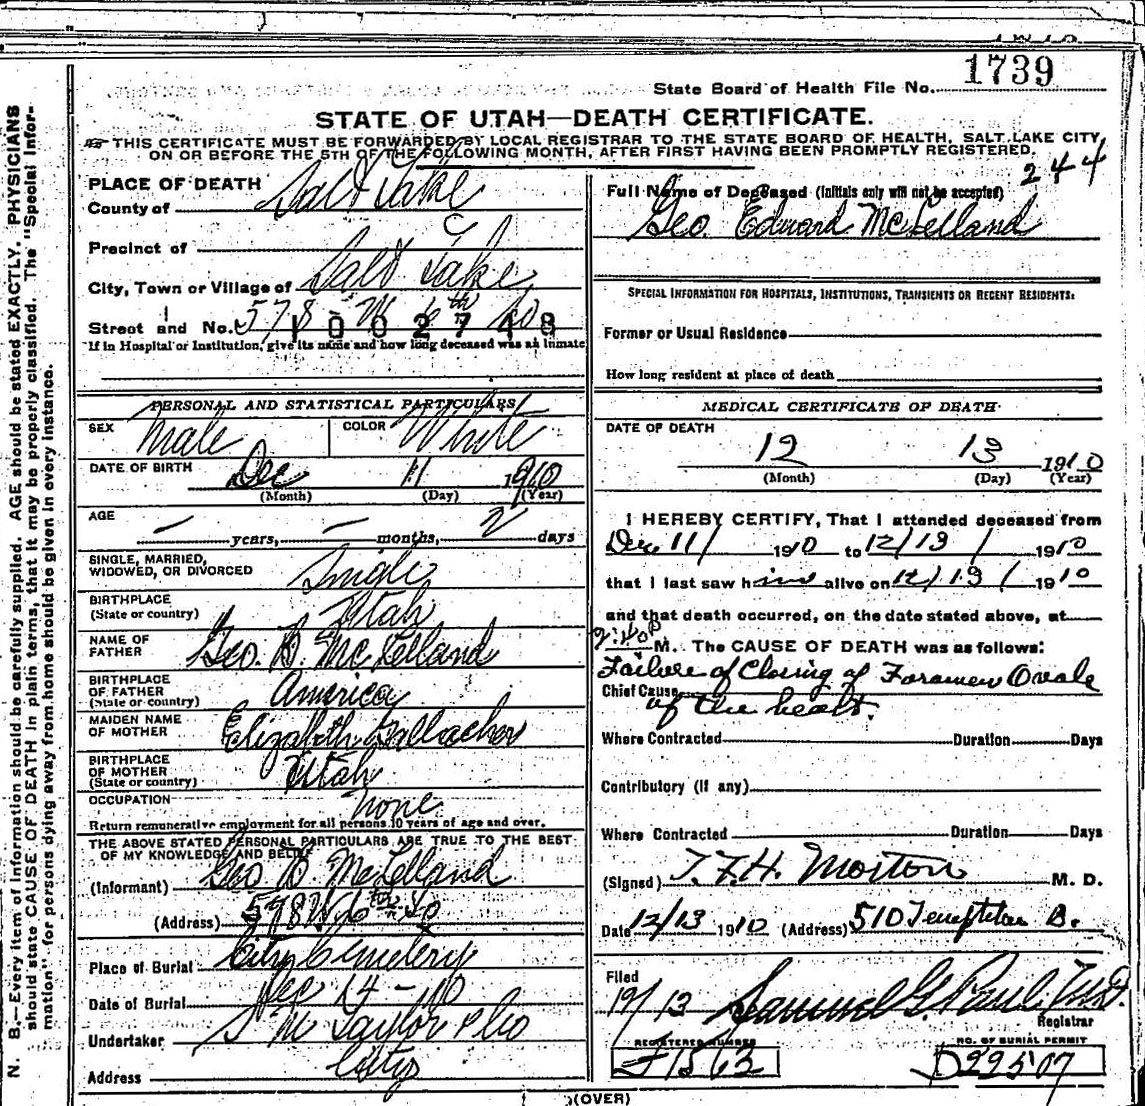 State Board of Health File No. 1739
STATE OF UTAH—DEATH CERTIFICATE.
THIS CERTIFICATE MUST BE FORWARDED BY LOCAL REGISTRAR TO THE STATE BOARD OF HEALTH, SALT LAKE CITY,
ON OR BEFORE THE 5TH OF THE FOLLOWING MONTH, AFTER FIRST HAVING BEEN PROMPTLY REGISTERED.
244
PLACE OF DEATH
County of Salt Lake
Precinct of
City, Town or Village of Salt Lake
Street and No. 578 W 6th So
1002748
If in Hospital or Institution, give its name and how long deceased was an inmate
PERSONAL AND STATISTICAL PARTICULARS
SEX Male COLOR White
DATE OF BIRTH Dec 11 1910
(Month) (Day) (Year)
AGE — years, — months, 2 days
SINGLE, MARRIED,
WIDOWED, OR DIVORCED Single
BIRTHPLACE
(State or country) Utah
NAME OF
FATHER Geo. B. McLelland
BIRTHPLACE
OF FATHER
(State or country) America
MAIDEN NAME
OF MOTHER Elizabeth Gallacher
BIRTHPLACE
OF MOTHER
(State or country) Utah
OCCUPATION none
Return remunerative employment for all persons 10 years of age and over.
THE ABOVE STATED PERSONAL PARTICULARS ARE TRUE TO THE BEST
OF MY KNOWLEDGE AND BELIEF
(Informant) Geo B. McLelland
(Address) 578 W 6 So
Place of Burial City Cemetery
Date of Burial Dec 14-10
Undertaker S M Taylor & Co
Address City
Full Name of Deceased (Initials only will not be accepted)
Geo. Edward McLelland
SPECIAL INFORMATION FOR HOSPITALS, INSTITUTIONS, TRANSIENTS OR RECENT RESIDENTS:
Former or Usual Residence
How long resident at place of death
MEDICAL CERTIFICATE OF DEATH
DATE OF DEATH
12 13 1910
(Month) (Day) (Year)
I HEREBY CERTIFY, That I attended deceased from
Dec 11/ 1910 to 12/13/ 1910
that I last saw him alive on 12/13/ 1910
and that death occurred, on the date stated above, at
2:40 P M. The CAUSE OF DEATH was as follows:
Failure of Closing of Foramen Ovale
Chief Cause of the heart.
Where Contracted Duration Days
Contributory (if any)
Where Contracted Duration Days
(Signed) T. F. H. Morton M. D.
Date 12/13 1910 (Address) 510 Templeton B.
Filed
12/13 Samuel G. Paul, M.D.
Registrar
REGISTERED NUMBER NO. OF BURIAL PERMIT
1563 D22507
(OVER)
N. B.—Every item of information should be carefully supplied. AGE should be stated EXACTLY. PHYSICIANS
should state CAUSE OF DEATH in plain terms, that it may be properly classified. The "Special Infor-
mation" for persons dying away from home should be given in every instance.